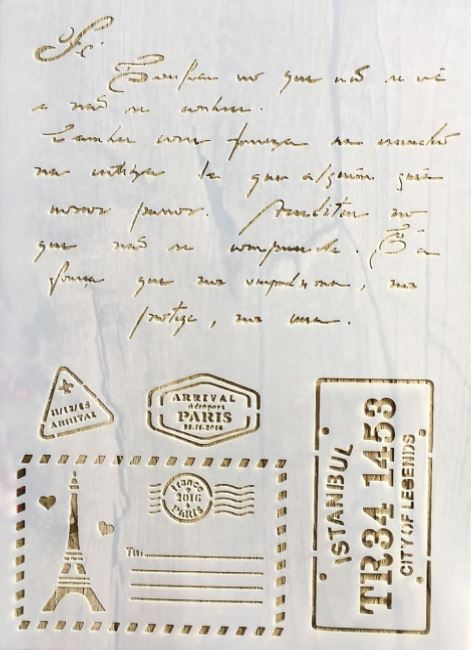 Fé
confiar no que não se vê
e não se conhece.
com firmeza na
na certeza de que alguém guia
nossos passos. Acreditar no
que não se compreende. É a
força que nos impulsiona, nos
protege, nos une.
11/12/65
ARRIVAL
ARRIVAL
Aéroport
PARIS
france
2016
PARIS
To:
ISTANBUL
TR34 1453
CITY OF LEGENDS